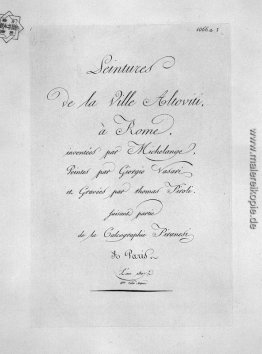 Peintures
de la Ville Altoviti,
à Rome,
inventées par Michelange,
Peintes par Giorgio Vasari
et Gravées par thomas Piroli.
faisant partie
de la Calcographie Piranesi
à Paris.
L'an 1807
www.malereikopie.de